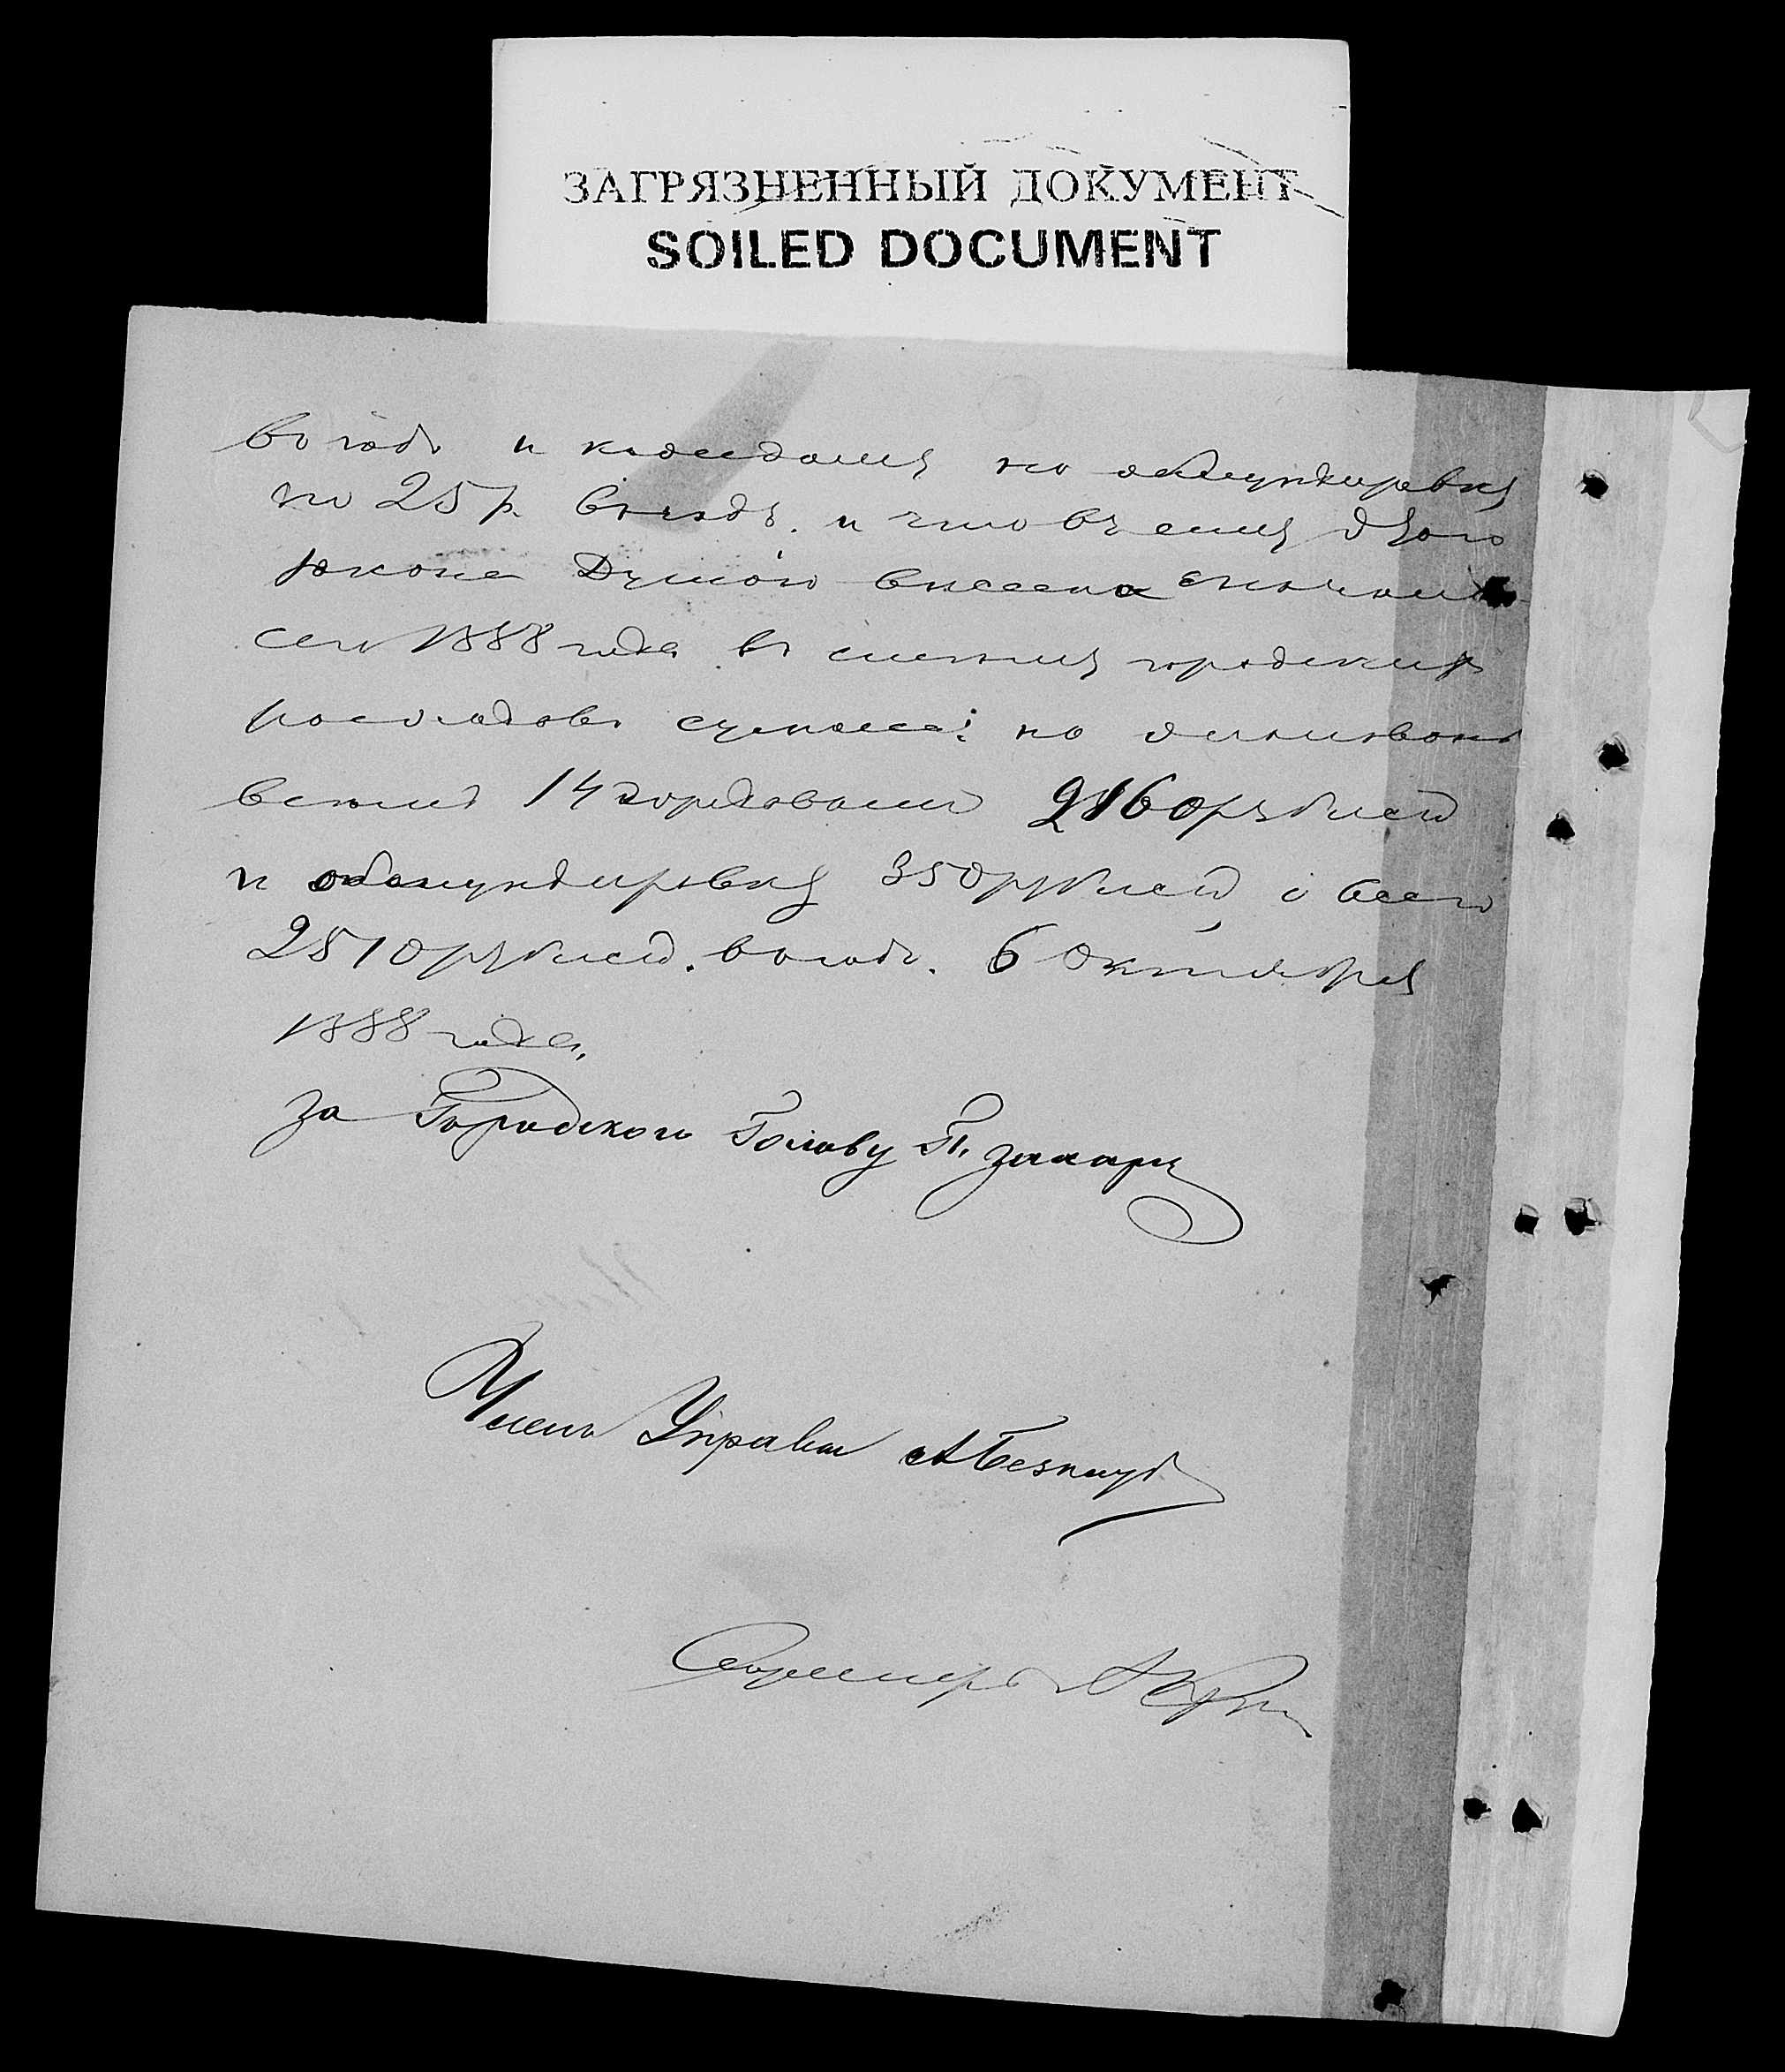 ЗАГРЯЗНЕННЫЙ ДОКУМЕНТ
SOILED DOCUMENT
въ годъ и каждому на обмундировку
по 25 р. въ годъ. и что въ силу
закона Думою внесена
сего 1888 года въ смету городскихъ
расходовъ сумма: на
всемъ 14 городовымъ 2160 рублей
и обмундировку 350 рублей а всего
2510 рублей. въ годъ. 6 Октября
1888 года.
За Городского Голову П. Захарц
Членъ Управы А Безкщуб
Секретарь А